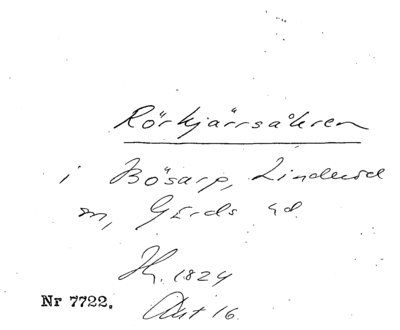 Rörkjärrsåkren
i Bösarp, Linderöd
sn, Gärds hd.
Hs. 1824
Akt 16
Nr 7722.